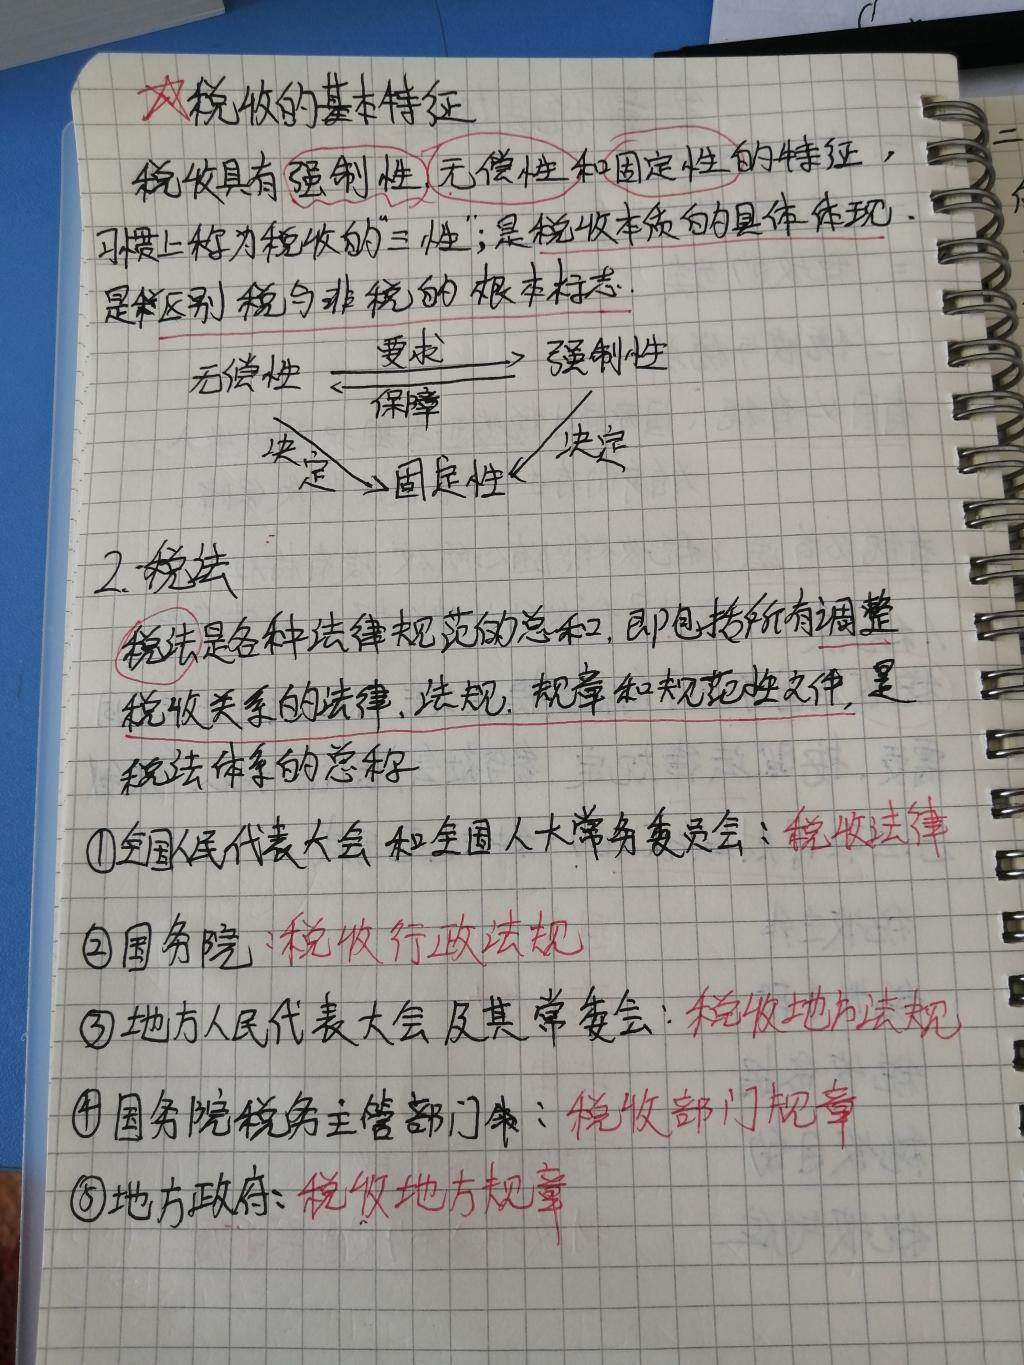 ☆税收的基本特征
税收具有强制性、无偿性和固定性的特征，
习惯上称为税收的“三性”；是税收本质的具体体现.
是区别税与非税的根本标志.
要求
无偿性 强制性
保障
决定 决定
固定性
2.税法
税法是各种法律规范的总和,即包括所有调整
税收关系的法律、法规、规章和规范性文件,是
税法体系的总称
①全国人民代表大会和全国人大常务委员会:税收法律
②国务院:税收行政法规
③地方人民代表大会及其常委会:税收地方法规
④国务院税务主管部门:税收部门规章
⑤地方政府:税收地方规章
二